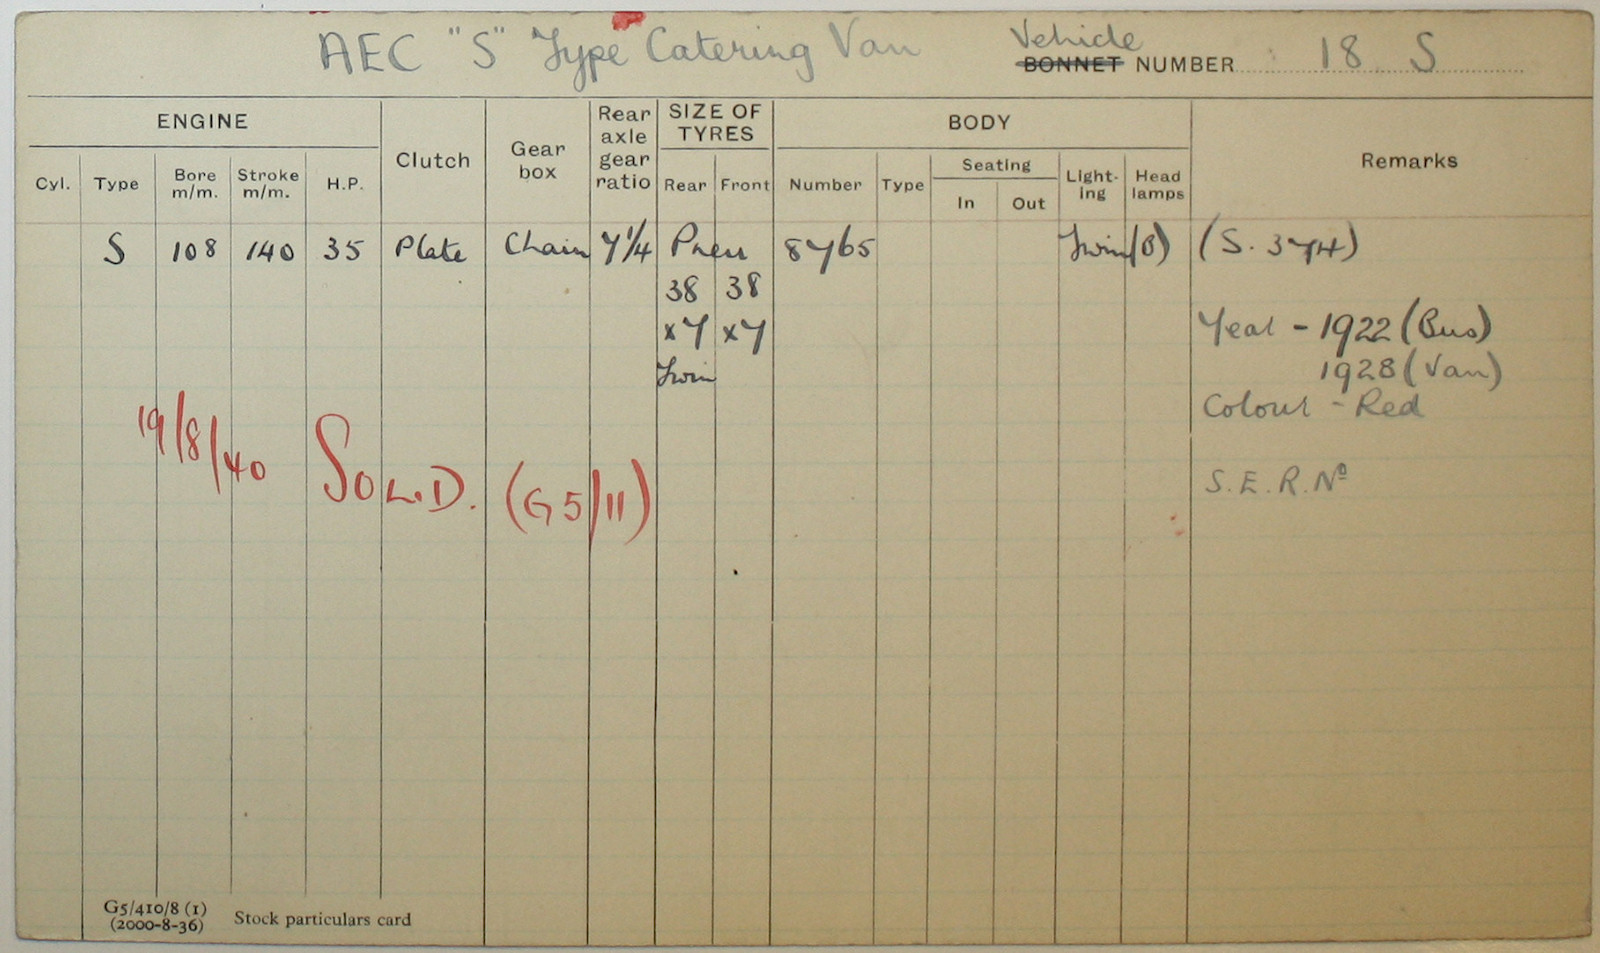 AEC "S" Type Catering Van
Vehicle
BONNET NUMBER 18 S
ENGINE
Cyl.
Type
Bore m/m.
Stroke m/m.
H.P.
Clutch
Gear box
Rear axle gear ratio
SIZE OF TYRES
Rear
Front
BODY
Number
Type
Seating
In
Out
Light-ing
Head lamps
Remarks
S 108 140 35 Plate Chain 7 1/4 Pneu 8765 Twin (B) (S. 374)
38 38
x7 x7
Twin
Year - 1922 (Bus)
1928 (Van)
Colour - Red
S.E.R. Nº
19/8/40 SOLD. (G5/11)
G5/410/8 (1)
(2000-8-36)
Stock particulars card